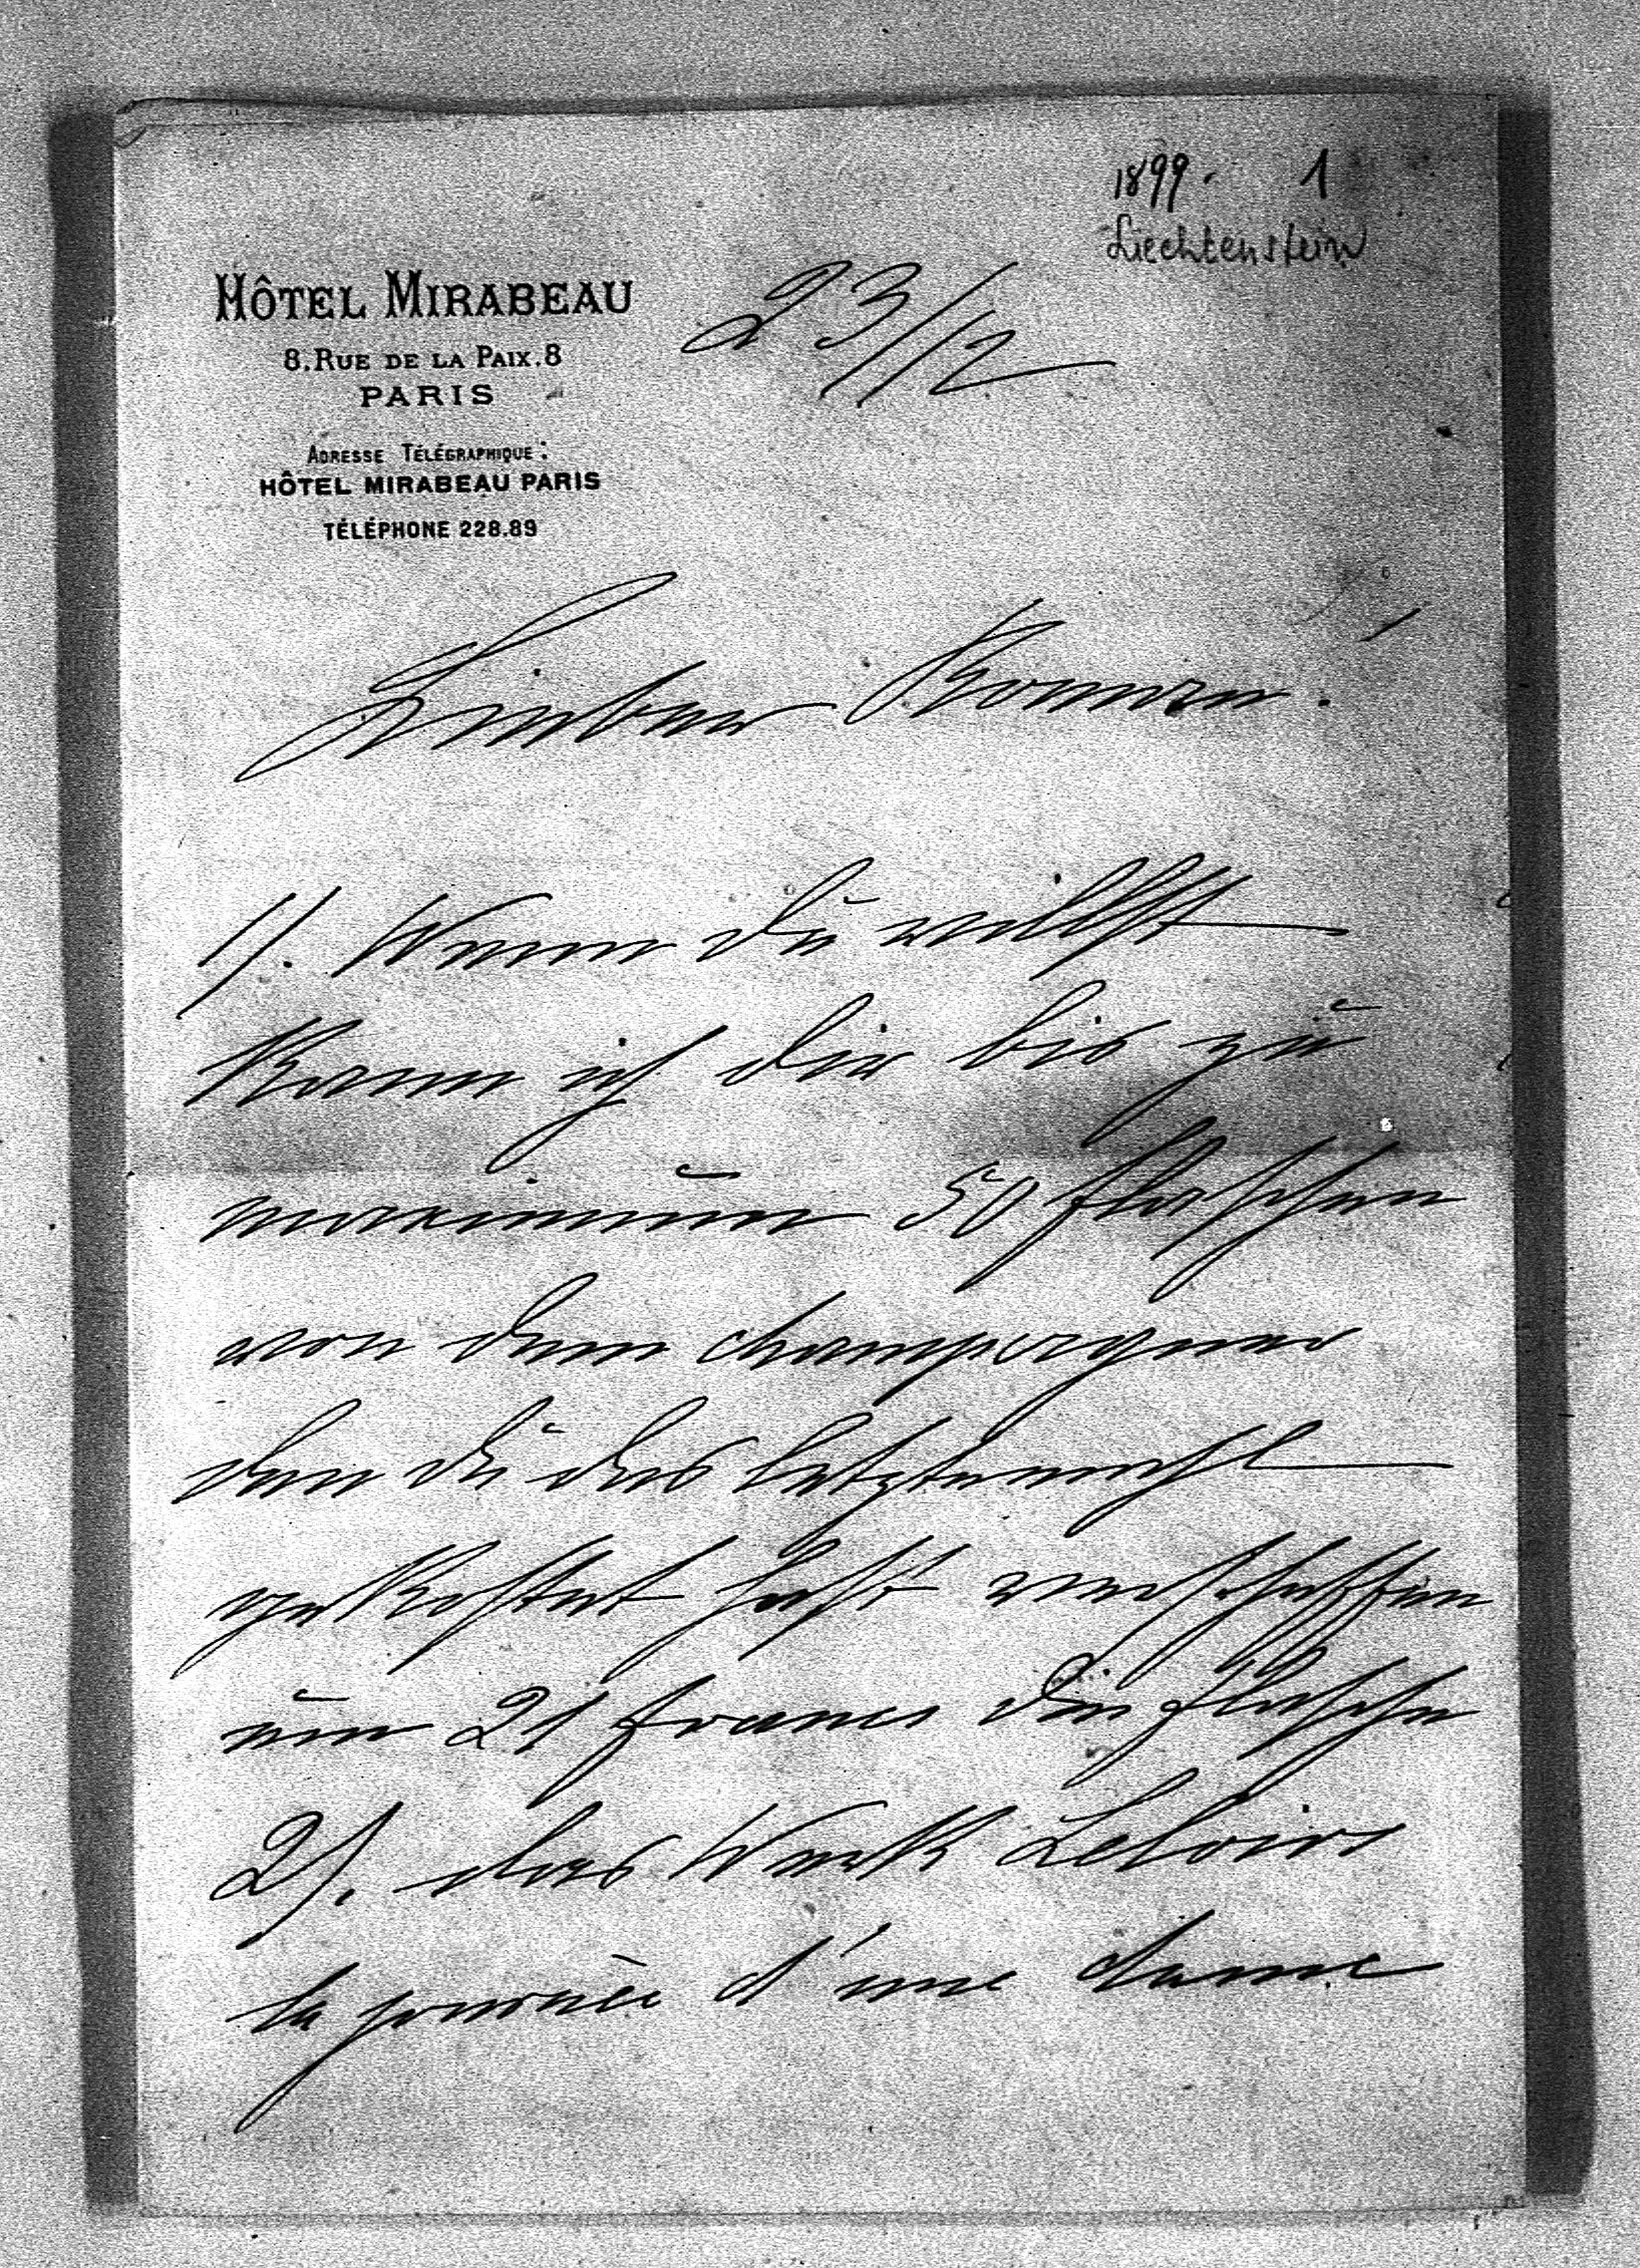 1899. 1
Liechtenstein
HÔTEL MIRABEAU
8. RUE DE LA PAIX. 8
PARIS
ADRESSE TÉLÉGRAPHIQUE:
HÔTEL MIRABEAU PARIS
TÉLÉPHONE 228.89
23/12
Lieber
1/. Wenn du willst
kann ich dir bis zu
maximum 50 flaschen
von dem champagner
den du das letztemahl
gekostet hast verschaffen
um 21 francs die flasche
2/. das Werk Leloirs
la journée d'une dame